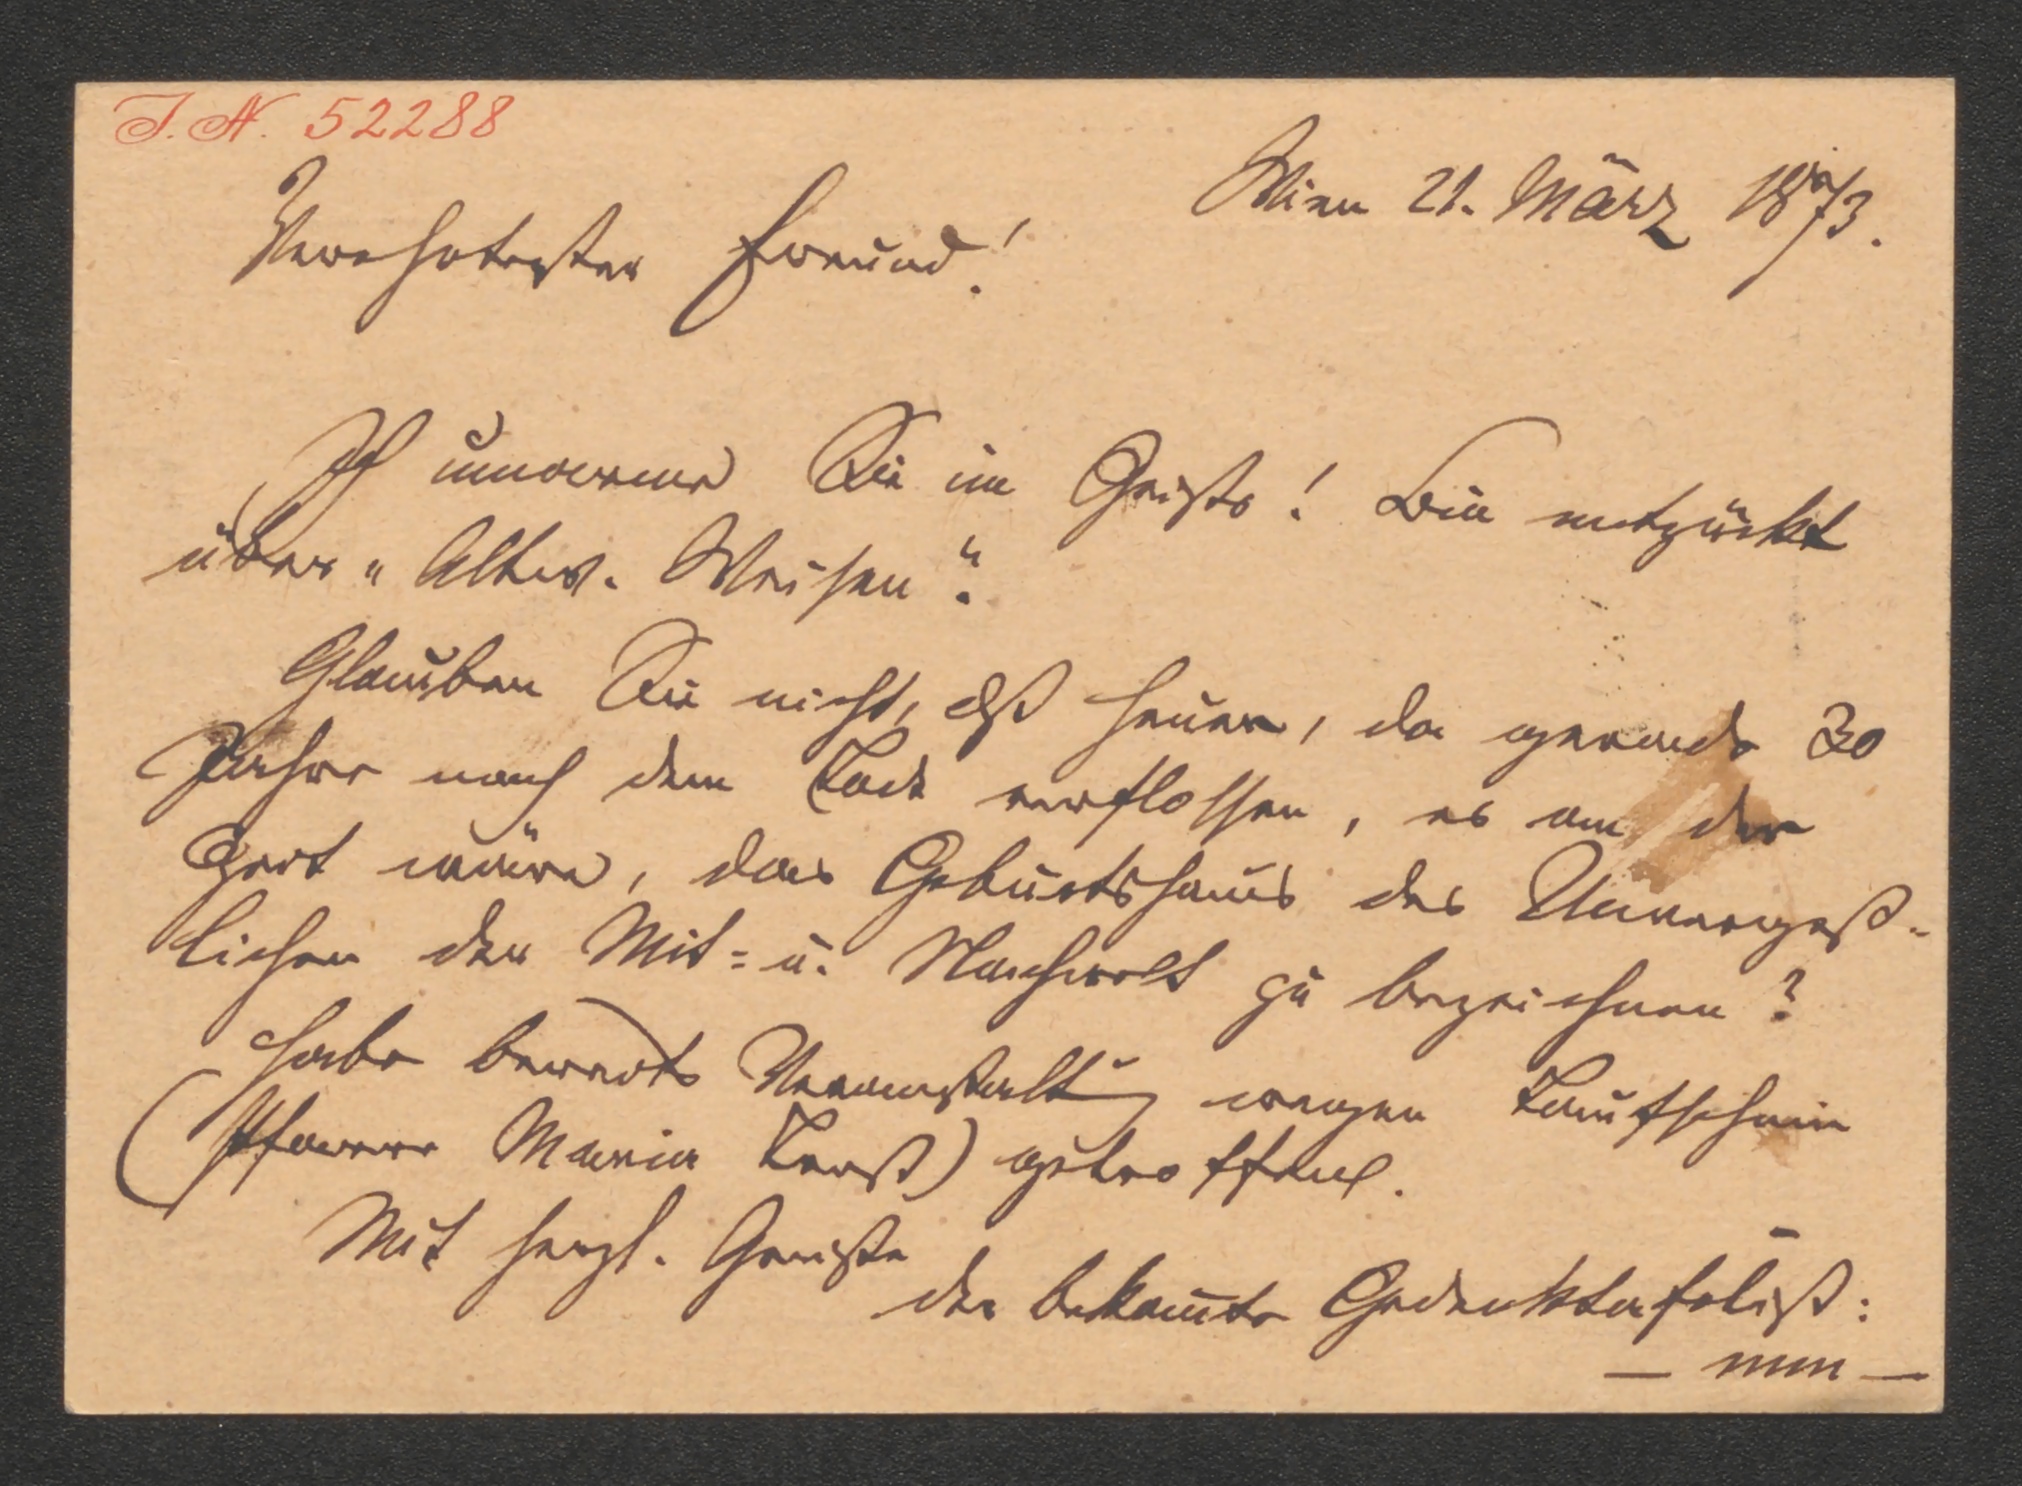 I. N. 52288
Wien 21. März 1873.
Verehrtester Freund!
Ich umarme Sie im Geiste! Bin entzückt
über „Altw. Weisen“.
Glauben Sie nicht, dß heuer, da gerade 30
Jahre nach dem Tode verflossen, es an der
Zeit wäre, das Geburtshaus des Unvergeß-
lichen der Mit= u. Nachwelt zu bezeichnen?
Habe bereits Veranstaltg wegen Taufschein
(Pfarre Maria Trost) getroffen.
Mit herzl. Gruße
der bekannte Gedenktafelist: